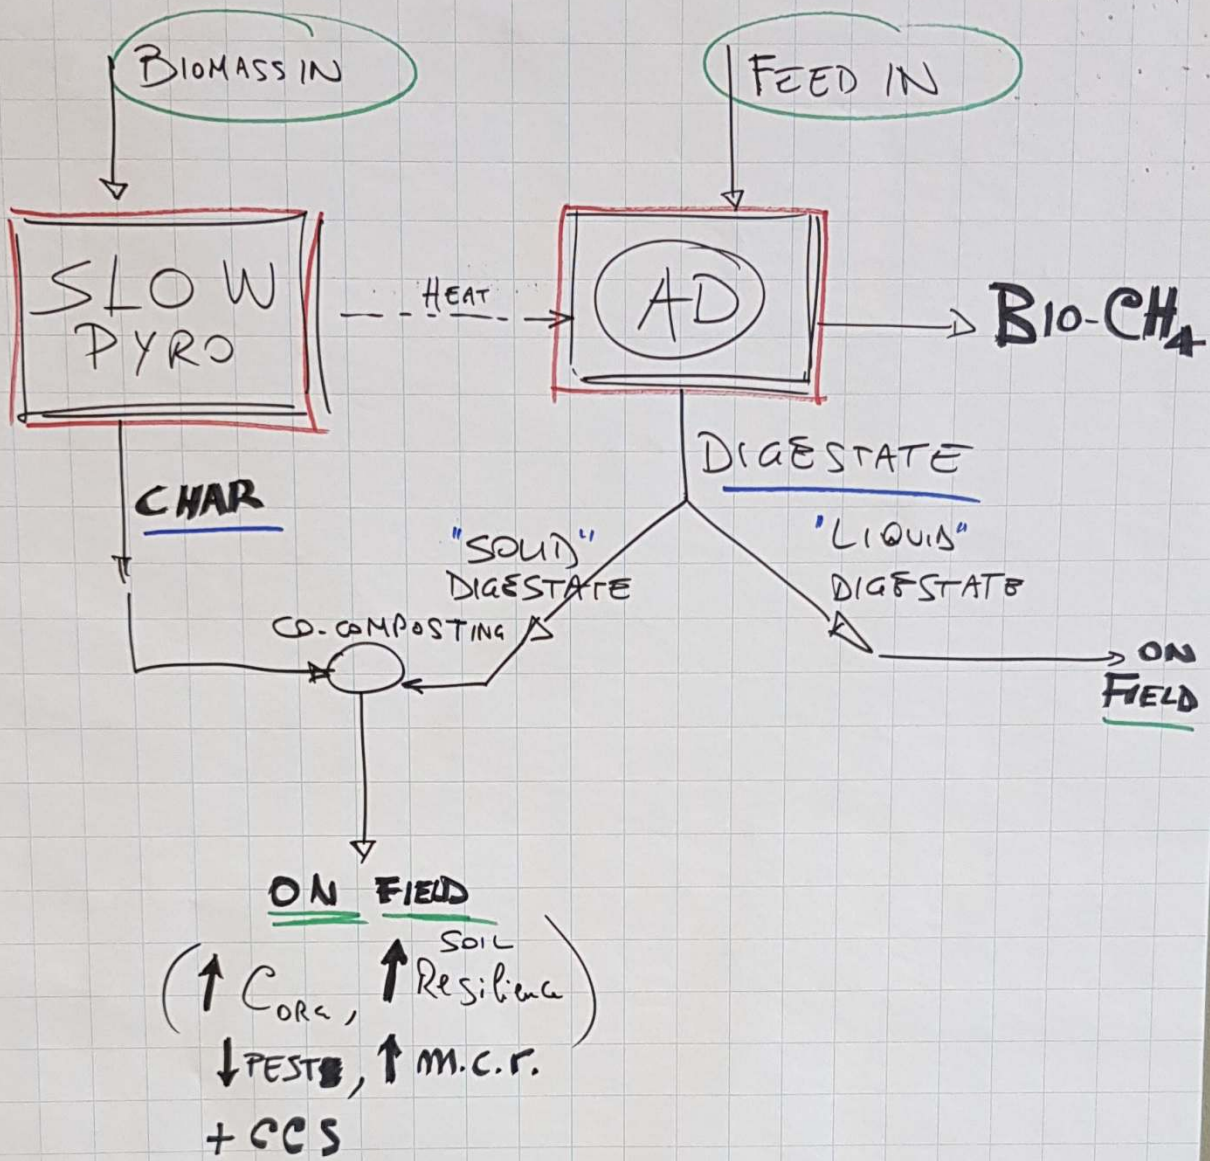 BIOMASS IN
FEED IN
SLOW
PYRO
HEAT
AD
BIO-CH4
CHAR
DIGESTATE
"SOLID"
DIGESTATE
"LIQUID"
DIGESTATE
CO-COMPOSTING
ON
FIELD
ON FIELD
(↑ CORG, ↑ SOIL
Resilience)
↓ PEST, ↑ m.c.r.
+ CCS